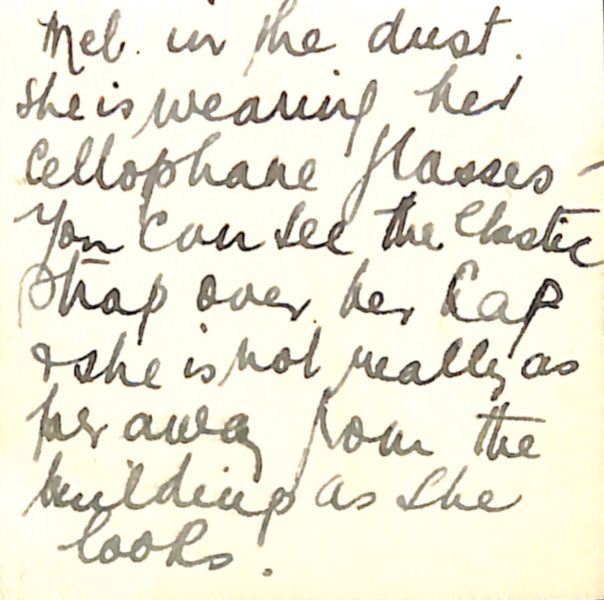 Mel. in the dust.
She is wearing her
Cellophane glasses –
You can see the elastic
strap over her cap
& she is not really as
far away from the
building as she
looks.